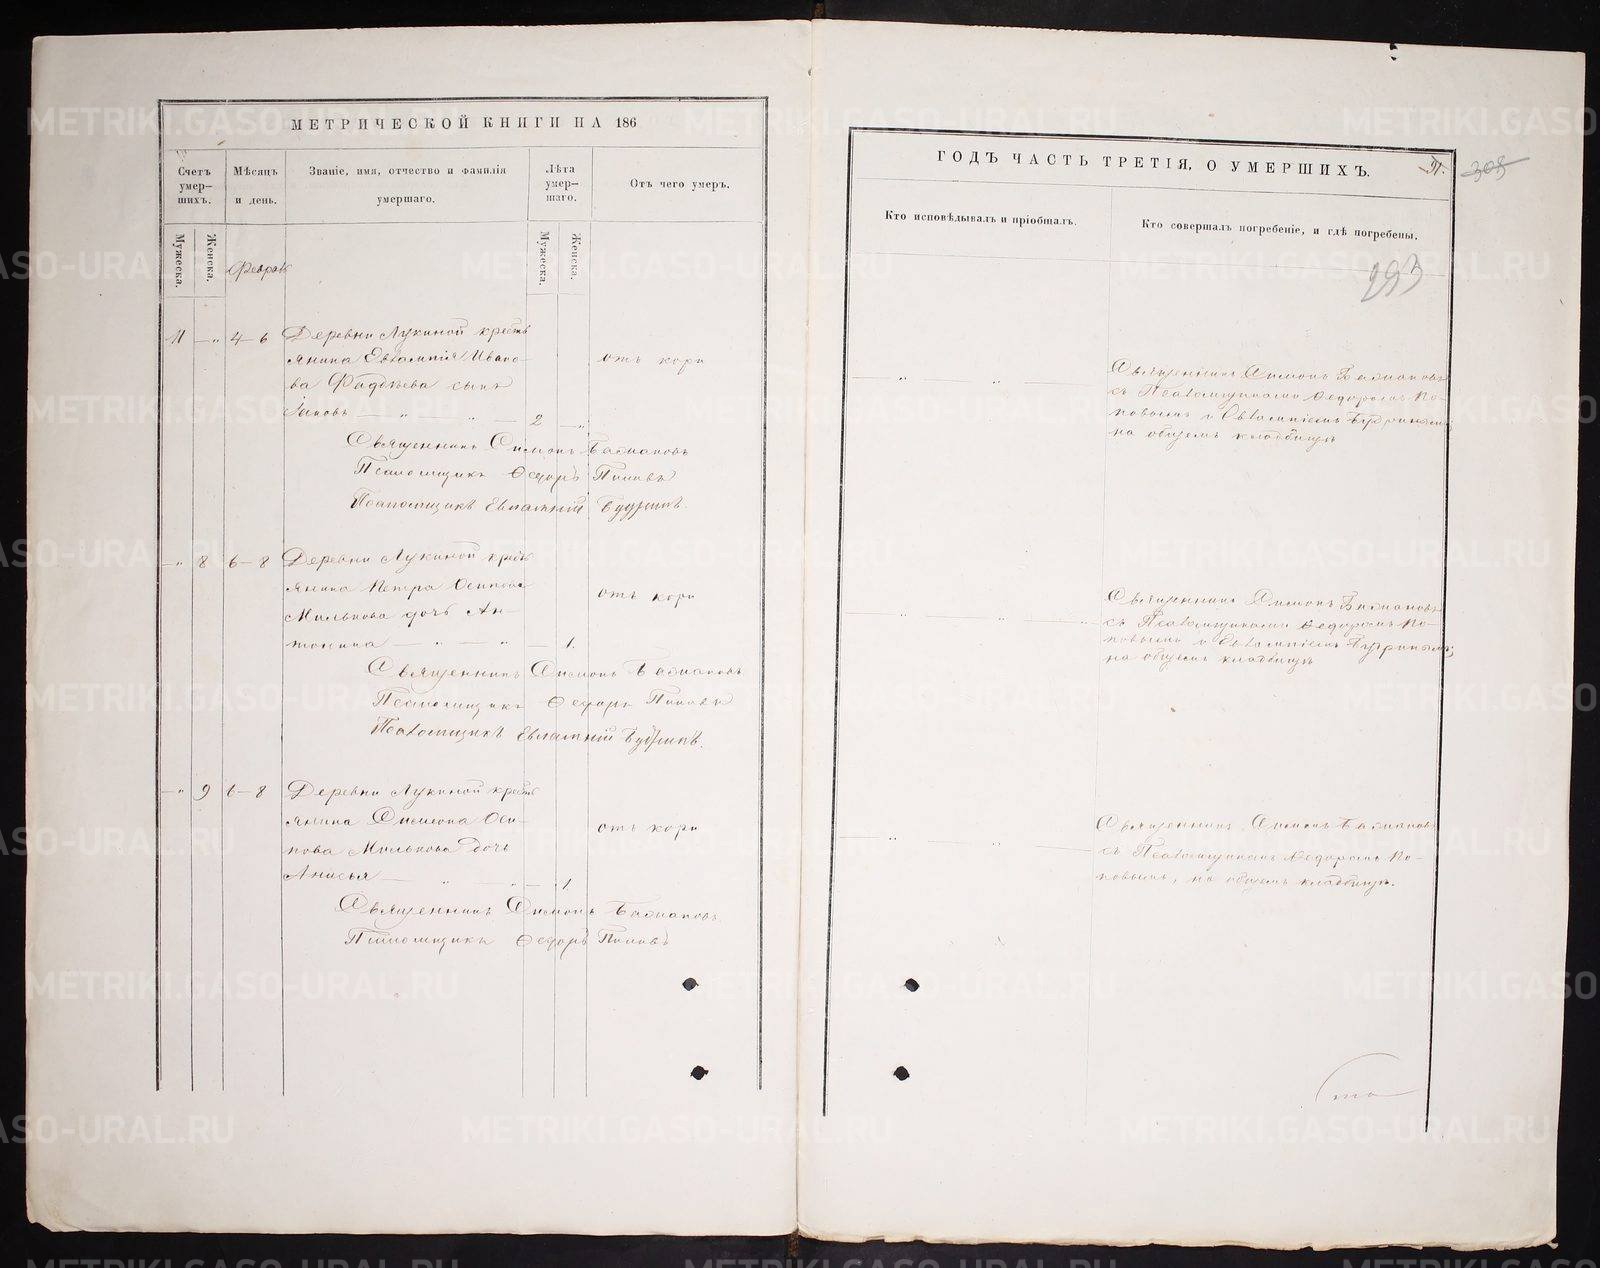 МЕТРИЧЕСКОЙ КНИГИ НА 186
Счетъ умер-
шихъ.
Мѣсяцъ
и день.
Званіе, имя, отчество и фамилія
умершаго.
Лѣта
умер-
шаго.
Отъ чего умеръ.
Мужеска.
Женска.
Мужеска.
Женска.
Февраль
11 — „ 4-6 Деревни Лукиной кресть
янина Евлампія Ивано-
ва Фадѣева сынъ
Іаковъ — „ — „ — 2 — „
отъ кори
Священникъ Симонъ Башановъ
Псаломщикъ Ѳедоръ Поповъ
Псаломщикъ Евлампій Будринъ.
— „ 8 6-8 Деревни Лукиной кресть
янина Петра Осипова
Милькова дочь Ан-
тонина — „ — „ — 1.
отъ кори
Священникъ Симонъ Башановъ
Псаломщикъ Ѳедоръ Поповъ
Псаломщикъ Евлампій Будринъ.
— „ 9 6-8 Деревни Лукиной кресть
янина Симеона Оси-
пова Милькова дочь
Анисья — „ — „ — 1
отъ кори
Священникъ Симонъ Башановъ
Псаломщикъ Ѳедоръ Поповъ
ГОДЪ ЧАСТЬ ТРЕТІЯ, О УМЕРШИХЪ.
31.
303
Кто исповѣдывалъ и пріобщалъ.
Кто совершалъ погребеніе, и гдѣ погребены.
293
Священникъ Симонъ Башановъ
съ Псаломщиками Ѳедоромъ По-
повымъ и Евлампіемъ Будринымъ,
на общемъ кладбищѣ
Священникъ Симонъ Башановъ
съ Псаломщиками Ѳедоромъ По-
повымъ и Евлампіемъ Будринымъ,
на общемъ кладбищѣ
Священникъ Симонъ Башановъ
съ Псаломщикомъ Ѳедоромъ По-
повымъ, на общемъ кладбищѣ.
METRIKI.GASO-URAL.RU